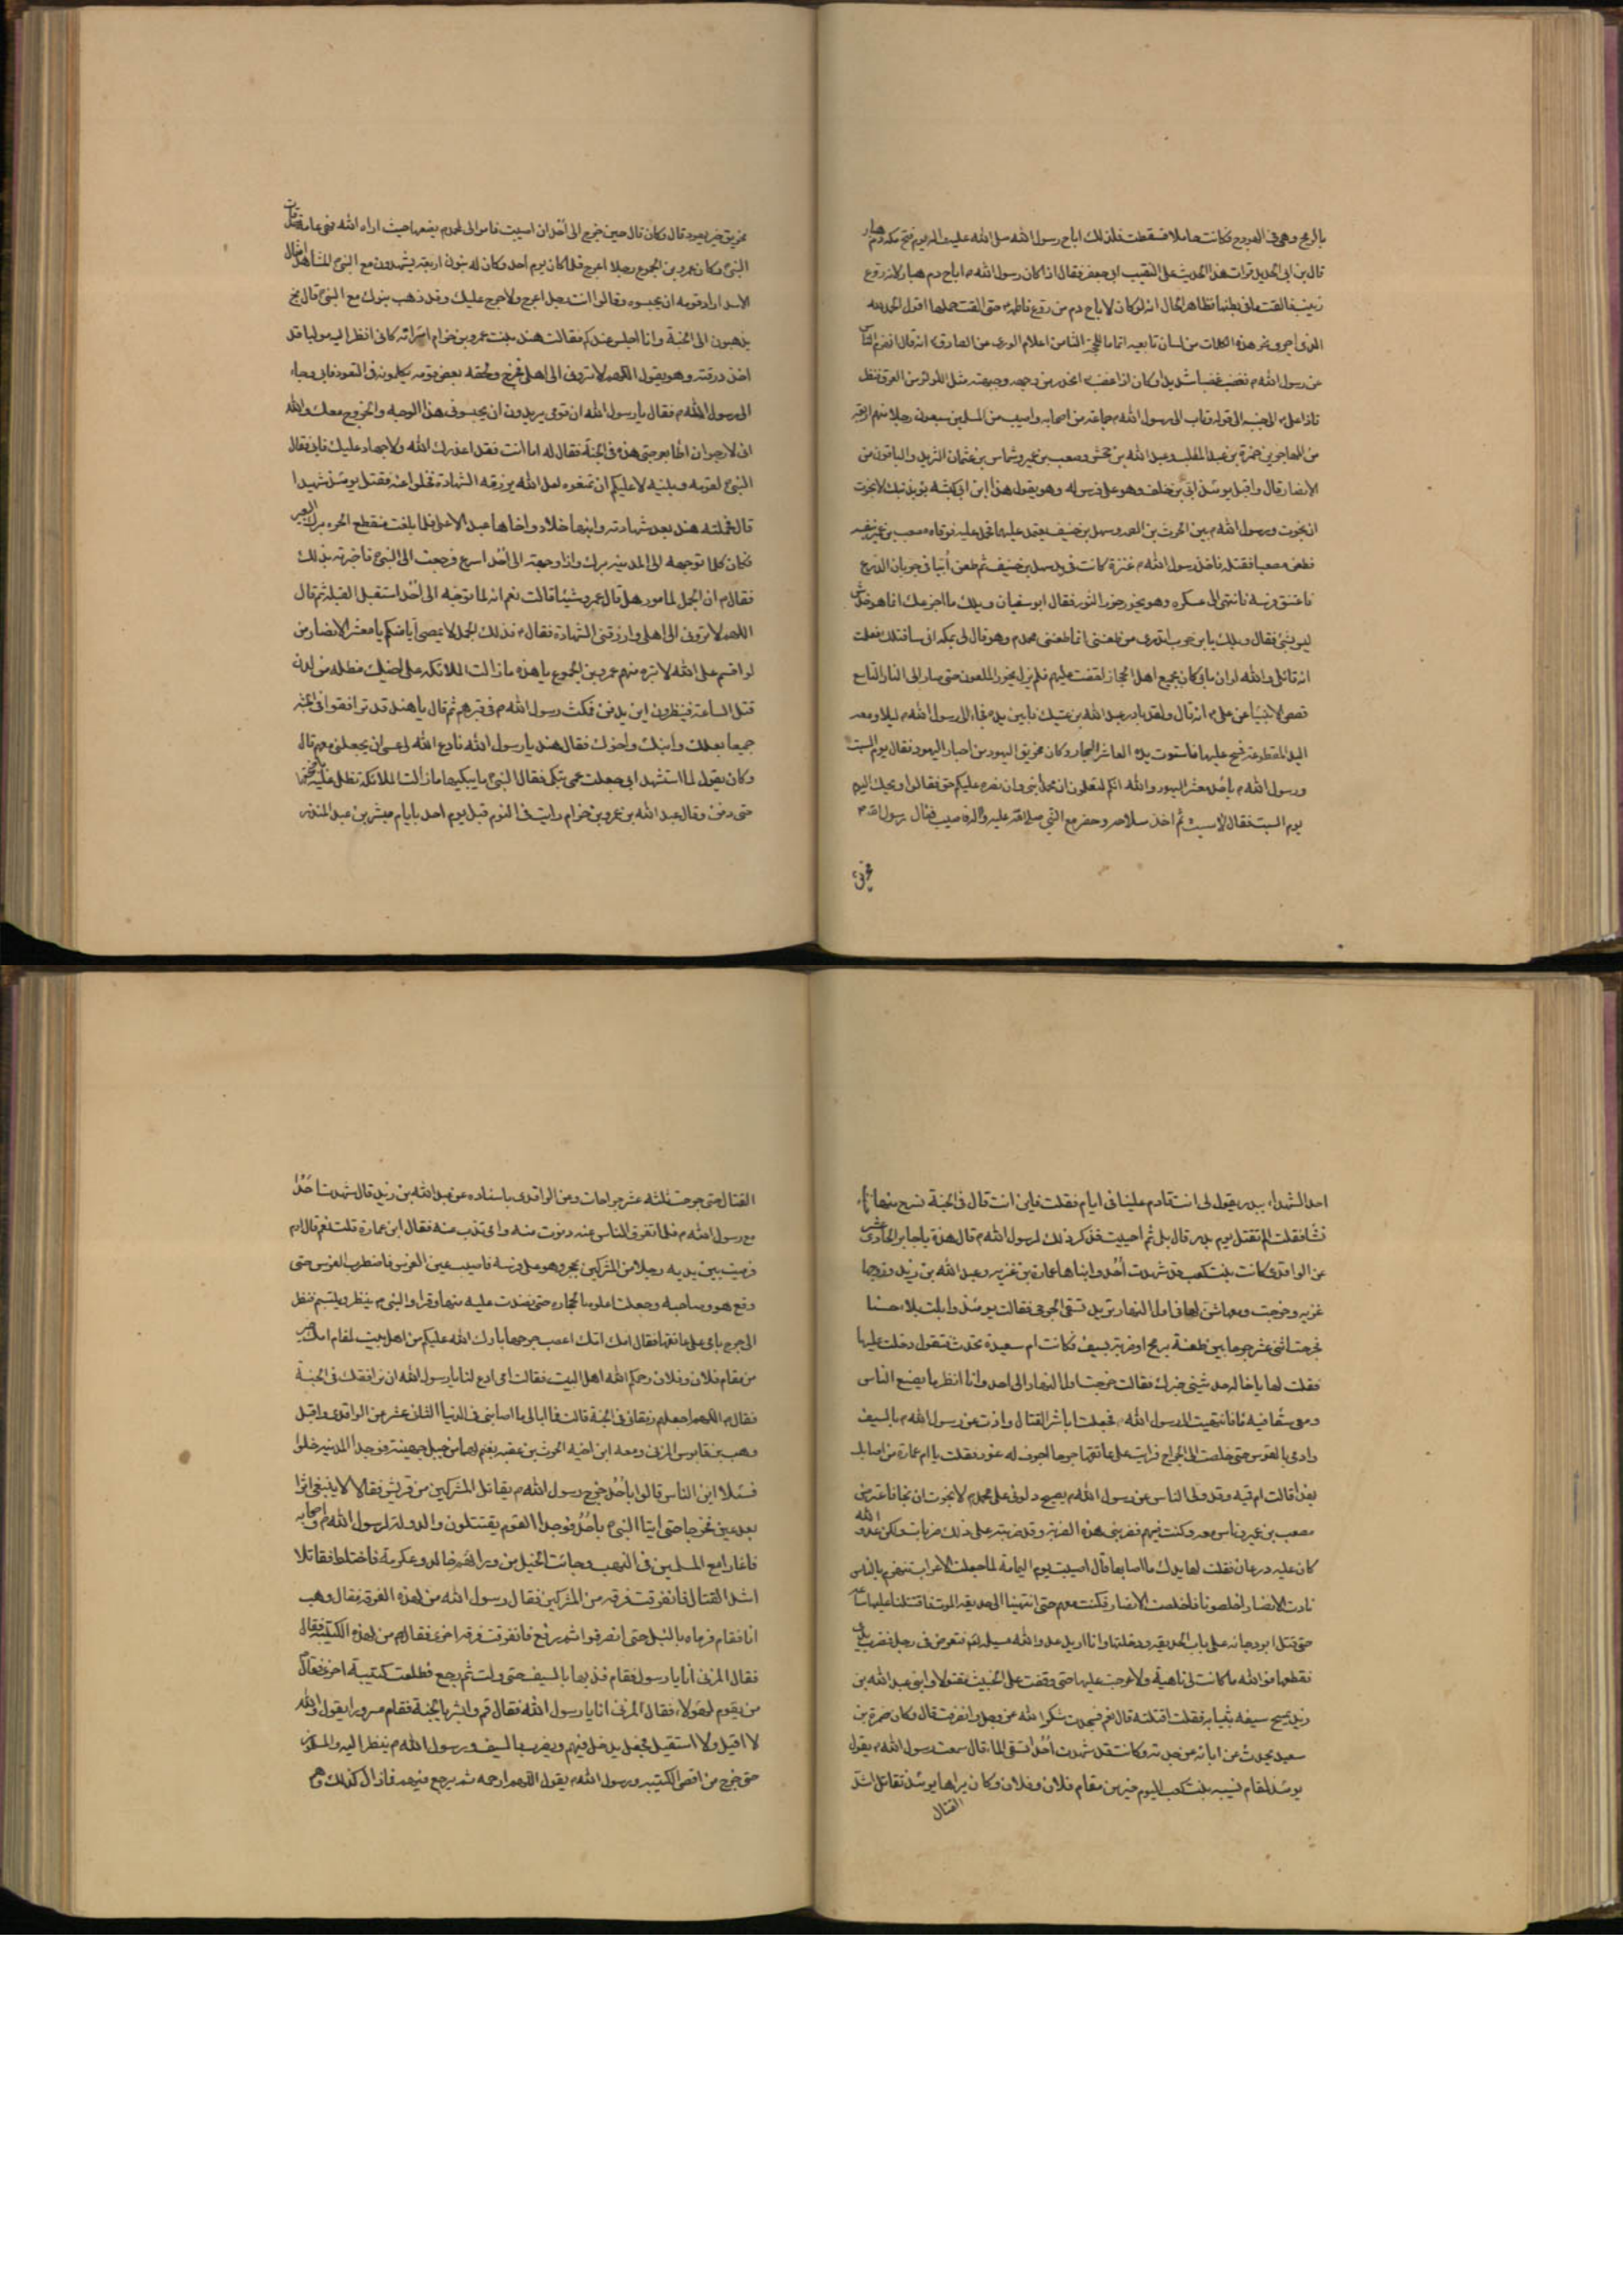 بالرمح وهي في الهودج وكانت حاملا فسقطت فلذلك اباح رسول الله صلى الله عليه واله يوم فتح مكه دم هبار
قال بن ابى الحديد قرات هذا الحديث على النقيب ابى جعفر فقال اذا كان رسول الله م اباح دم هبار لانه روع
زينب فالقت ما فى بطنها فظاهر الحال انه لو كان لاباح دم من روع فاطمة م حتى القت حملها اقول الحمد لله
الذى اجرى نحو هذه الكلمات من لسان تابعيه اتماما للحجة الثامن اعلام الورى عن الصادق ع انه قال انهزم الناس
عن رسول الله م فغضب غضبا شديدا وكان اذا غضب انحدر من وجهه وجبهته مثل اللولو من العرق فنظر
فاذا على ع الى جنبه الى قوله وثاب الى رسول الله م جماعة من اصحابه واصيب من المسلمين سبعون رجلا منهم اربعة
من المهاجرين حمزة بن عبد المطلب وعبد الله بن جحش ومصعب بن عمير وشماس بن عثمان الشريد والباقون من
الانصار قال واقبل يومئذ ابى بن خلف وهو على فرس له وهو يقول هذا ابن ابى كبشه بؤ بذنبك لا نجوت
ان نجوت ورسول الله م بين الحرث بن الصمه وسهل بن حنيف يعتمد عليهما فحمل عليه فوقاه مصعب بن عمير بنفسه
فطعن مصعبا فقتله فاخذ رسول الله م عنزة كانت فى يد سهل بن حنيف ثم طعن أبيا فى جربان الدرع
فاعتنق فرسه فانتهى الى عسكره وهو يخور خوار الثور فقال ابو سفيان ويلك ما اجزعك انما هو خدش
ليس بشئ فقال ويلك يا بن حرب اتدرى من طعننى انما طعننى محمد م وهو قال لى بمكه انى ساقتلك فعلمت
انه قاتلى والله لو ان ما بى كان بجميع اهل الحجاز لقضت عليهم فلم يزل يخور الملعون حتى صار الى النار التاسع
قصص الانبياء عن على ع انه قال ولقد بادر عبد الله بن عتيك فابين يده فجاء الى رسول الله م ليلا ومعه
اليد المقطوعة فمسح عليها فاستوت يده العاشر البحار وكان مخريق اليهودى من احبار اليهود فقال يوم السبت
ورسول الله م باحد يا معشر اليهود والله انكم لتعلمون ان محمدا نبى وان نصره عليكم حق فقالوا ويحك اليوم
يوم السبت فقال لا سبت ثم اخذ سلاحه وحضر مع النبى صلى الله عليه واله فاصيب فقال رسول الله م
مخريق
مخريق خير يهود قال وكان قال حين خرج الى أحد ان اصبت فاموالى لمحمد م يضعها حيث اراه الله فهى عامة صدقات
النبى م وكان عمرو بن الجموع رجلا اعرج فلما كان يوم احد وكان له بنون اربعة يشهدون مع النبى م المشاهد امثال
الاسد اراد قومه ان يحبسوه وقالوا انت رجل اعرج ولا حرج عليك وقد ذهب بنوك مع النبى م قال بخ
يذهبون الى الجنة وانا اجلس عندكم فقالت هند بنت عمرو بن حزام امرأته كانى انظر اليه موليا قد
اخذ درقته وهو يقول اللهم لا تردنى الى اهلى فخرج ولحقه بعض قومه يكلمونه فى القعود فابى وجاء
الى رسول الله م فقال يا رسول الله ان قومى يريدون ان يحبسونى هذا الوجه والخروج معك والله
انى لارجو ان اطأ بعرجتى هذه فى الجنة فقال له اما انت فقد اعذرك الله ولا جهاد عليك فابى فقال
النبى م لقومه وبنيه لا عليكم ان تمنعوه لعل الله يرزقه الشهادة فخلوا عنه فقتل يومئذ شهيدا
قال فحملته هند بعد شهادته وابنها خلاد واخاها عبد الله على فلما بلغت منقطع الحره برك البعير
فكان كلما توجهه الى المدينه برك واذا وجهته الى أحد اسرع فرجعت الى النبى م فاخبرته بذلك
فقال م ان الجمل لمامور هل قال عمرو شيئا قالت نعم انه لما توجه الى أحد استقبل القبلة ثم قال
اللهم لا تردنى الى اهلى وارزقنى الشهادة فقال م فذلك الجمل لا يمضى ان منكم يا معشر الانصار من
لو اقسم على الله لابره منهم عمرو بن الجموع يا هذه ما زالت الملائكة على اخيك مظله من لدن
قتل الساعة فينظرون اين يدفن فمكث رسول الله م فى قبرهم ثم قال يا هند قد ترافقوا فى الجنه
جميعا بعلك وابنك واخوك فقال هند يا رسول الله فادع الله لى عسى ان يجعلنى معهم قال
وكان يقول لما استشهد ابى جعلت عمى تبكى فقال النبى م ما يبكيها ما زالت الملائكة تظل عليه باجنحتها
حتى دفن وقال عبد الله بن عمرو بن حزام رايت فى النوم قبل يوم احد بايام مبشر بن عبد المنذر
احد الشهداء ببدر يقول لى انت قادم علينا فى ايام فقلت فاين انت قال فى الجنة نسرح منها
نشاء فقلت الم تقتل يوم بدر قال بلى ثم احييت فذكر ذلك لرسول الله م قال هذه يا جابر الحادى عشر
عن الواقدى كانت بنت كعب قد شهدت أحد وابناها عمارة بن غزيه وعبد الله بن زيد وزوجها
غزيه وخرجت ومعها شن لها فى اول النهار تريد تسقى الجرحى فقاتلت يومئذ وابلت بلاء حسنا
فجرحت اثنى عشر جرحا بين طعنة برمح او ضربة بسيف فكانت ام سعيدة تحدث فتقول دخلت عليها
فقلت لها يا خاله حدثينى خبرك فقالت خرجت اول النهار الى احد وانا انظر ما يصنع الناس
ومعى سقاء فيه ماء فانتهيت الى رسول الله م فجعلت اباشر القتال واذب عن رسول الله م بالسيف
وارمى بالقوس حتى خلصت الى الجراح فرايت على عاتقها جرحا اجوف له غور فقلت يا ام عمارة من اصابك
بهذا قالت ابن قميه وقد ولى الناس عن رسول الله م يصيح دلونى على محمد م لا نجوت ان نجا فاعترض
مصعب بن عمير وناس معه وكنت فيهم فضربنى هذه الضربة وقد ضربته على ذلك ضربات ولكن عدو الله
كان عليه درعان فقلت لها يدك ما اصابها قال اصيبت يوم اليمامة لما جعلت الاعراب تنهزم بالناس
نادت الانصار اخلصونا فاخلصت الانصار فكنت معهم حتى انتهينا الى حديقه الموت فاقتتلنا عليها ساعة
حتى قتل ابو دجانه على باب الحديقه ودخلتها وانا اريد عدو الله مسيلمه فتعرض لى رجل فضرب يدى
فقطعها فوالله ما كانت لى ناهية ولا عرجت عليها حتى وقفت على الخبيث مقتولا وابنى عبد الله بن
زيد يمسح سيفه بثيابه فقلت اقتلته قال نعم فسجدت شكرا لله عز وجل وانصرفت قال وكان ضمرة بن
سعيد يحدث عن ابائه عن جدته وكانت قد شهدت أحدا تسقى الماء قال سمعت رسول الله م يقول
يومئذ لمقام نسيبه بنت كعب اليوم خير من مقام فلان وفلان وكان يراها يومئذ تقاتل اشد
القتال
القتال حتى جرحت ثلثه عشر جراحات وعن الواقدى باسناده عن عبد الله بن زيد قال شهدت احدا
مع رسول الله م فلما تفرق الناس عنه دنوت منه وامى تذب عنه فقال ابن عمارة قلت نعم قال ارم
فرميت بين يديه رجلا من المشركين بحجر وهو على فرسه فاصيب عين الفرس فاضطرب الفرس حتى
وقع هو وصاحبه وجعلت اعلوه بالحجاره حتى نضدت عليه منها وقرا والنبى م ينظر ويتبسم فنظر
الى جرح بامى على عاتقها فقال امك امك اعصب جرحها بارك الله عليكم من اهل بيت لمقام امك خير
من مقام فلان وفلان رحمكم الله اهل البيت فقالت امى ادع لنا يا رسول الله ان نرافقك فى الجنة
فقال م اللهم اجعلهم رفقائى فى الجنة قالت فما ابالى ما اصابنى فى الدنيا الثانى عشر عن الواقدى واقبل
وهب بن قابوس المزنى ومعه ابن اخيه الحرث بن عقبه بغنم لهما من جبل جهينة فوجدا المدينه خلوا
فسئلا اين الناس قالوا بأحد خرج رسول الله م يقاتل المشركين من قريش فقالا لا نبتغى اثرا
بعد عين فخرجا حتى اتيا النبى م بأحد فوجدا القوم يقتتلون والدولة لرسول الله م واصحابه
فاغارا مع المسلمين فى النهب وجائت الخيل من ورائهم خالد وعكرمة فاختلط فقاتلا
اشد القتال فانفرقت فرقه من المشركين فقال رسول الله من لهذه الفرقه فقال وهب
انا فقام فرماه بالنبل حتى انصرفوا ثم رجع فانفرقت فرقه اخرى فقال م من لهذه الكتيبه فقال
فقال المزنى انا يا رسول فقام فذبها بالسيف حتى ولت ثم رجع فطلعت كتيبة اخرى فقال م
من يقوم لهؤلاء فقال المزنى انا يا رسول الله فقال قم وابشر بالجنة فقام مسرورا يقول والله
لا اقيل ولا استقيل فجعل يدخل فيهم ويضرب بالسيف ورسول الله م ينظر اليه والمسلمون
حتى خرج من اقصى الكتيبه ورسول الله م يقول اللهم ارحمه ثم يرجع فيهم فمازال كذلك وهم